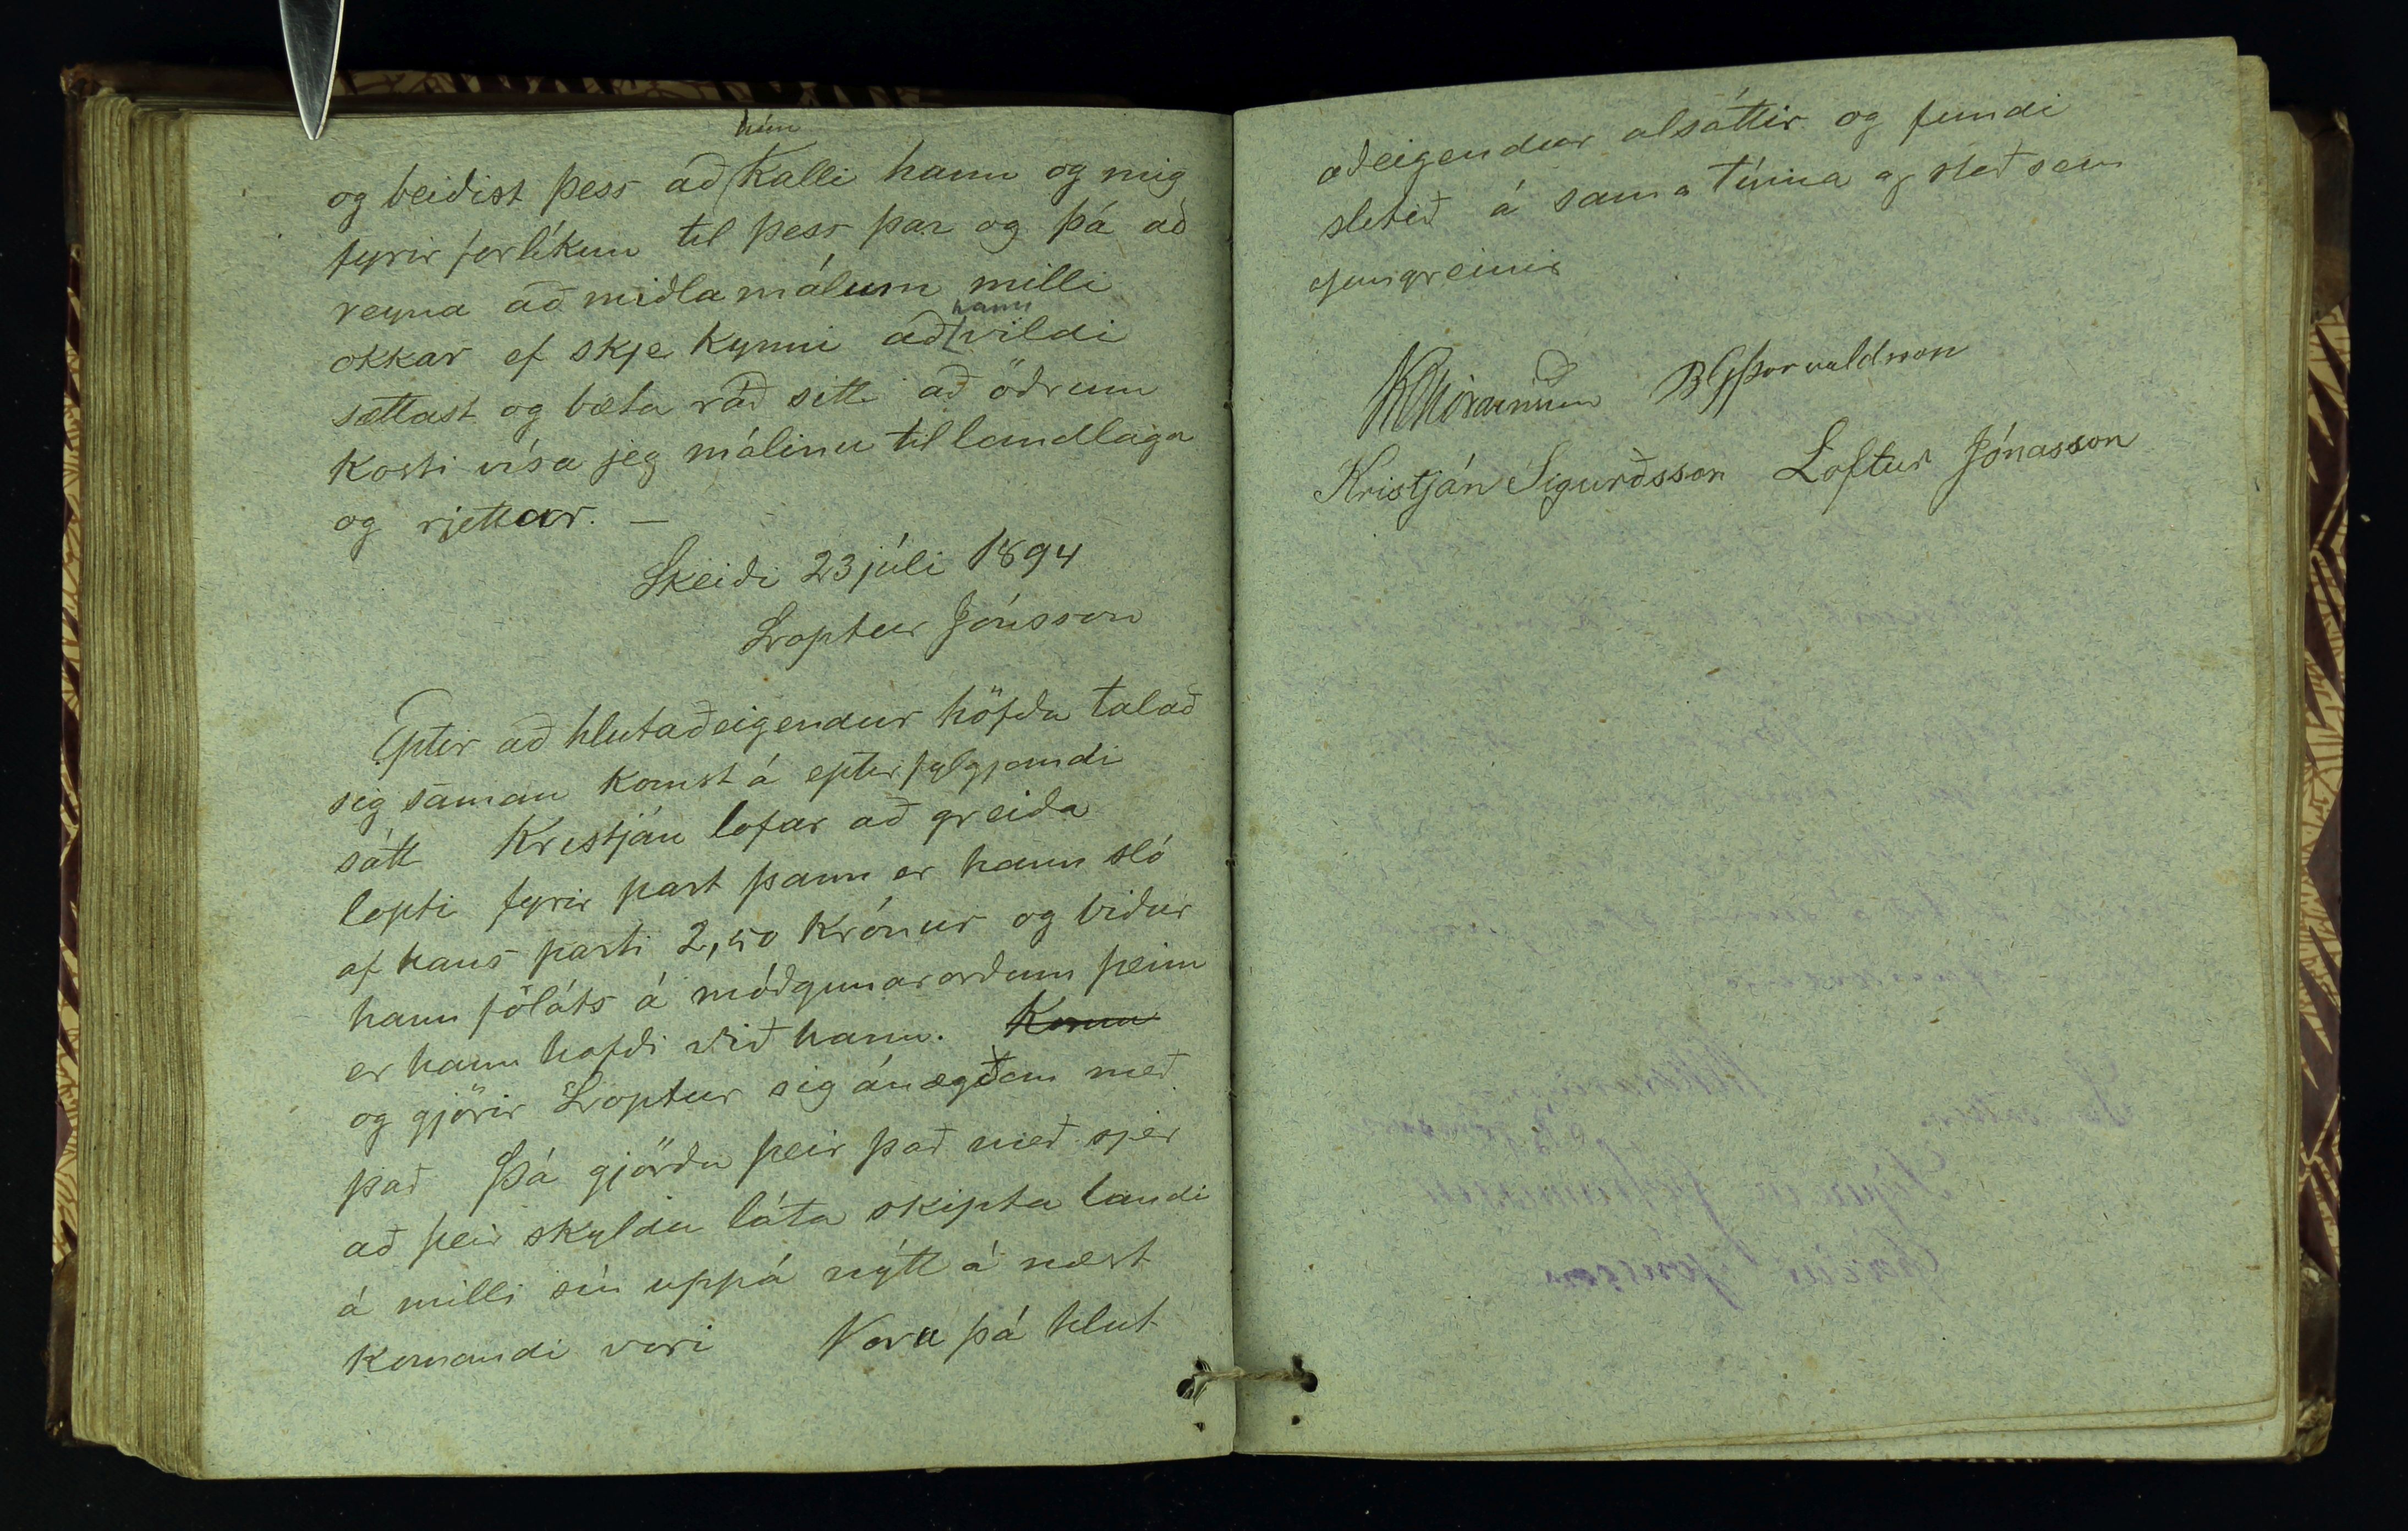 hún
og beiðist þess að Kalli hann og mig
fyrir forlíkun til þess þar og þá að
reyna að miðla málum milli
hann
okkar ef skje kynni að vildi
sættast og bæta ráð sitt að öðrum
kosti vísa jeg málinu til landlaga
og rjettar. —
Skeiði 23 júli 1894
Loptur Jónsson
Eptir að hlutaðeigendur höfðu talað
sig saman komst á epterfylgjandi
sátt Kristján lofar að greiða
lopti fyrir part þann er hann sló
af hans parti 2,50 Krónur og biður
hann föláts á móðgunarorðum þeim
er hann hafði við hann. Komu
og gjörir Loptur sig ánægðan með
það Þá gjörðu þeir það með sjer
að þeir skyldu láta skipta landi
á milli sín uppá nýtt á næst
komandi vori Voru þá hlut
aðeigendur alsáttir og fundi
slitið á sama tíma og stað sem
ofangreinir
BGÞorvaldsson
Kristján Sigurðsson Loftur Jónasson